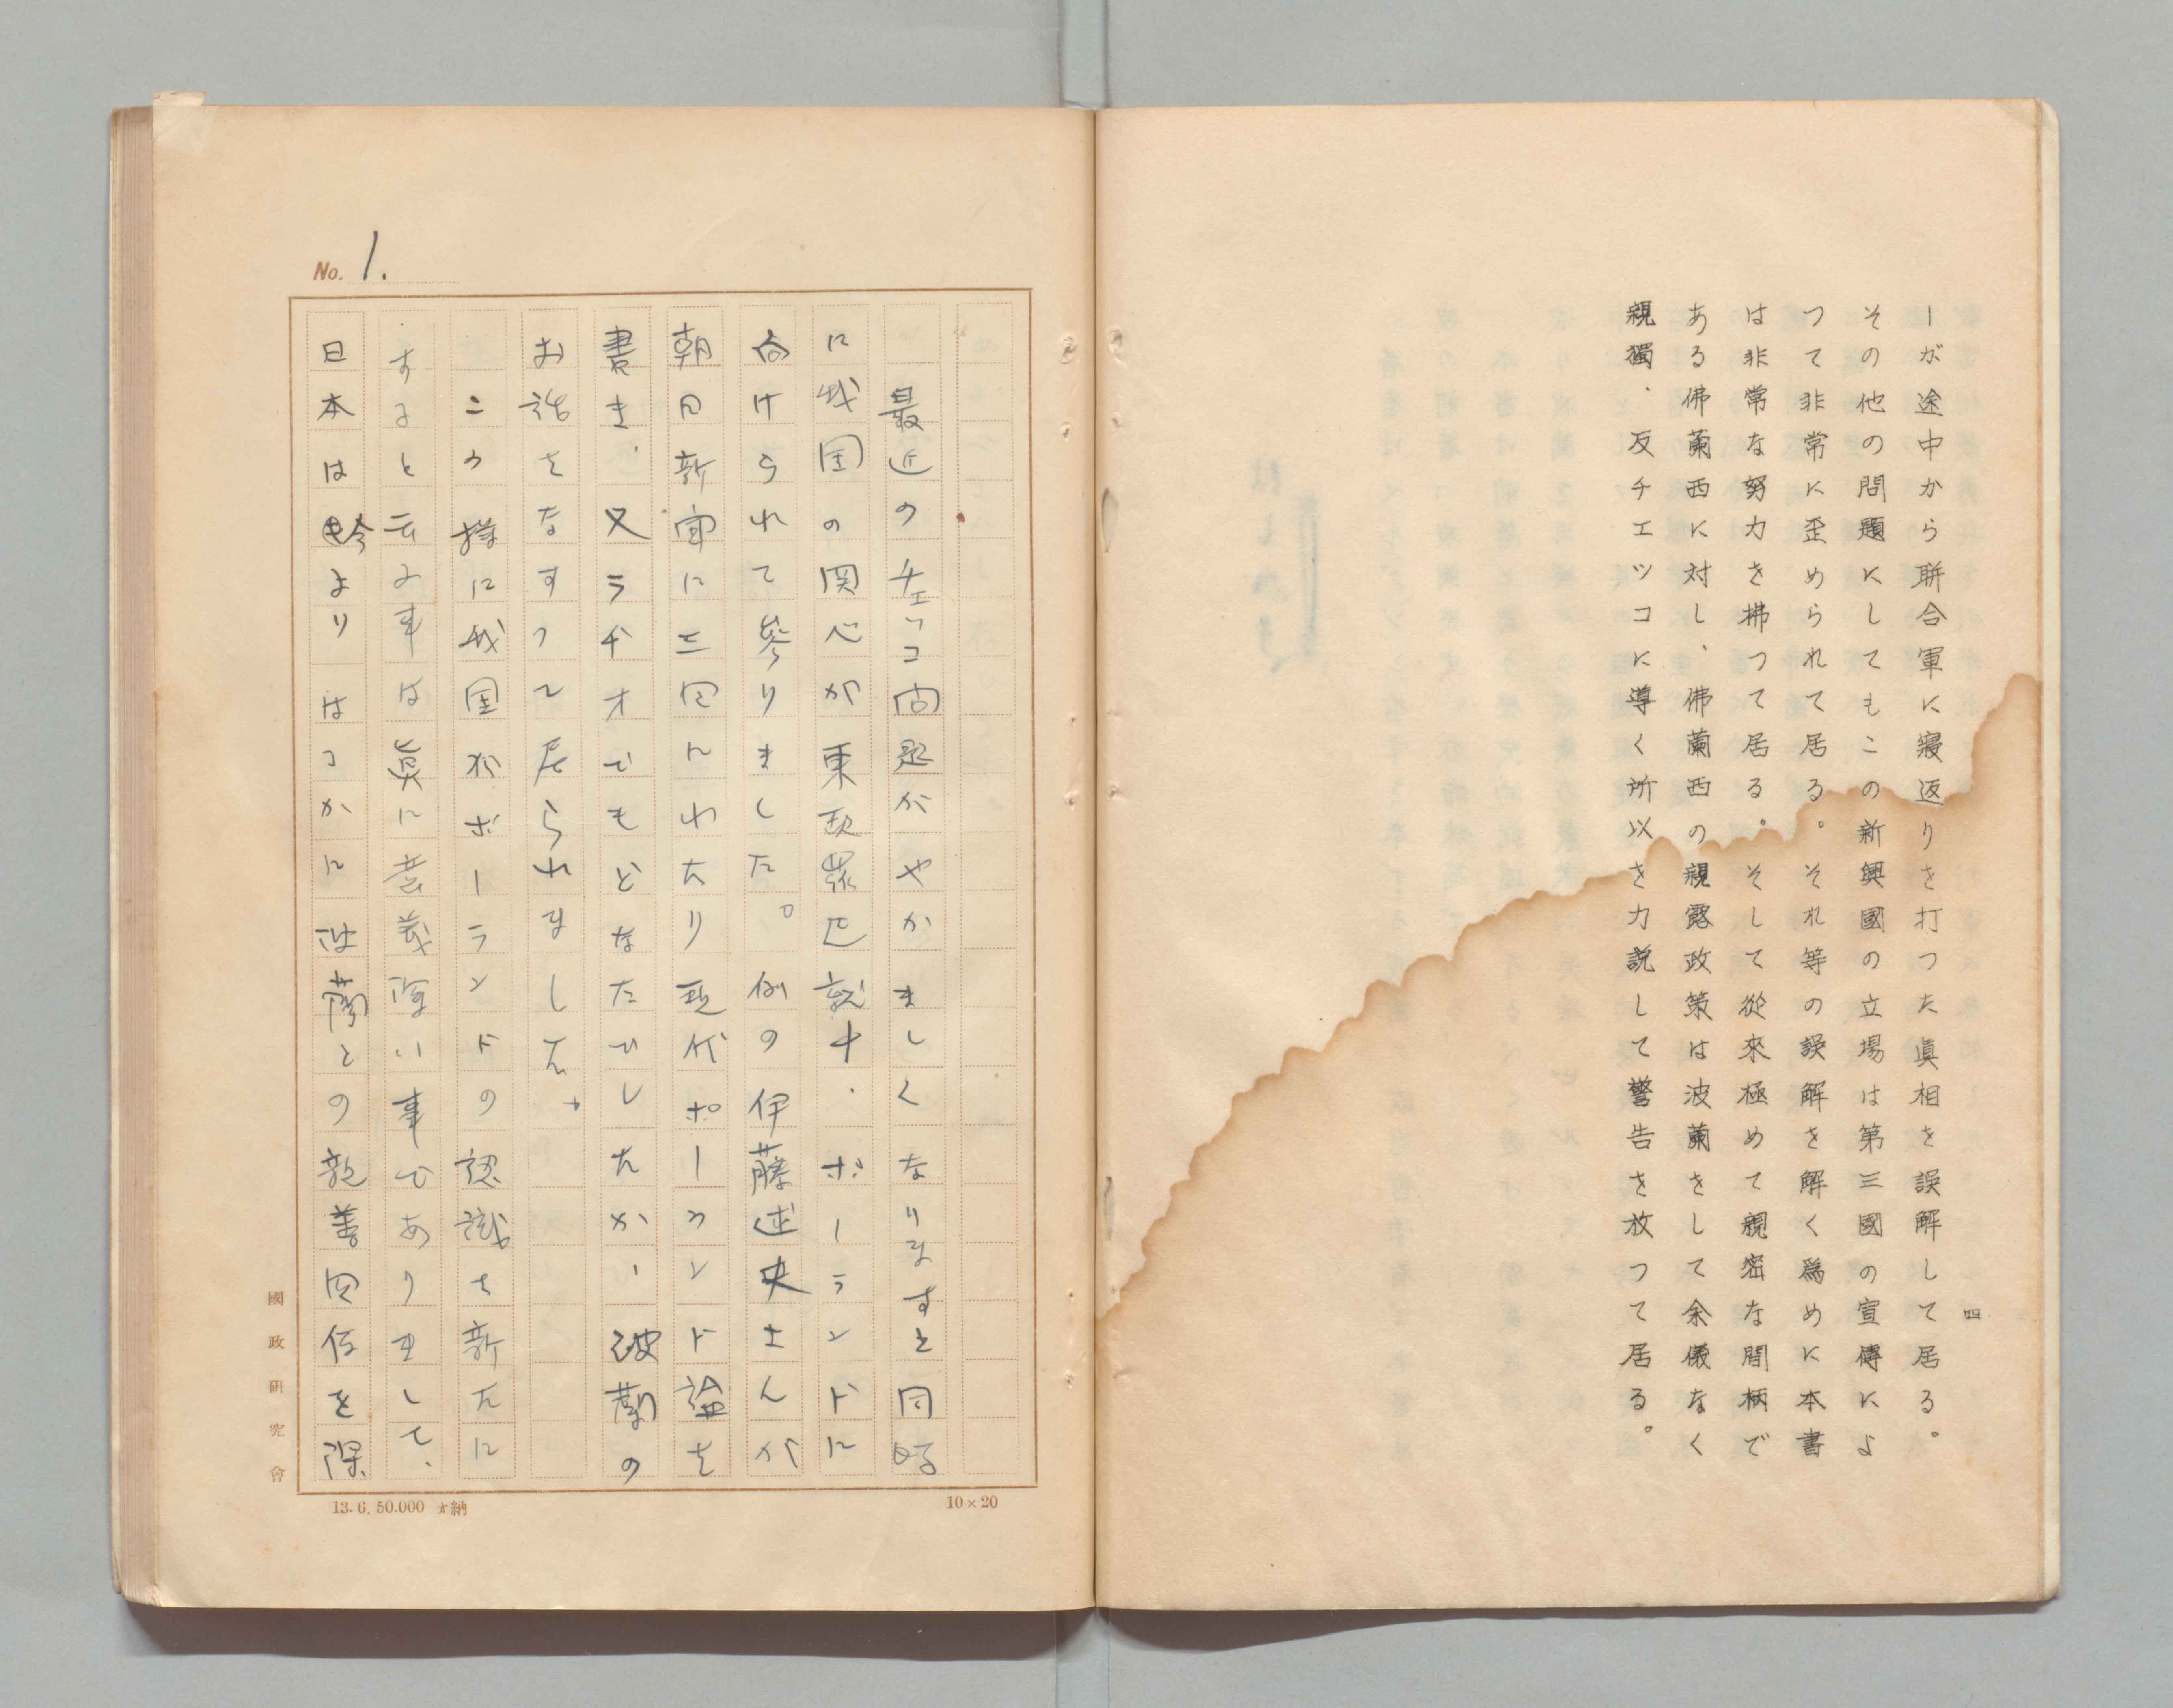 ーが途中から聯合軍に寝返りを打つた眞相を誤解して居る。
その他の問題にしてもこの新興國の立場は第三國の宣傳によ
つて非常に歪められて居る。それ等の誤解を解く爲めに本書
は非常な努力を拂つて居る。そして從來極めて親密な間柄で
ある佛蘭西に対し、佛蘭西の親露政策は波蘭をして余儀なく
親獨、反チエツコに導く所以を力説して警告を放つて居る。
四
No. 1.
最近のチェッコ問題がやかましくなりますと同時
に我国の関心が東欧羅巴就中、ポーランドに
向けられて參りました。例の伊藤述史さんが
朝日新聞に三回にわたり現代ポーランド論を
書き、又ラヂオでもどなたひしたか、波蘭の
お話をなすつて居られました。
この様に我国がポーランドの認識を新たに
すると云ふ事は眞に意義深い事でありまして、
日本は より はつかに波蘭との親善関係を深
國政研究會
13.6.50.000 納
10×20